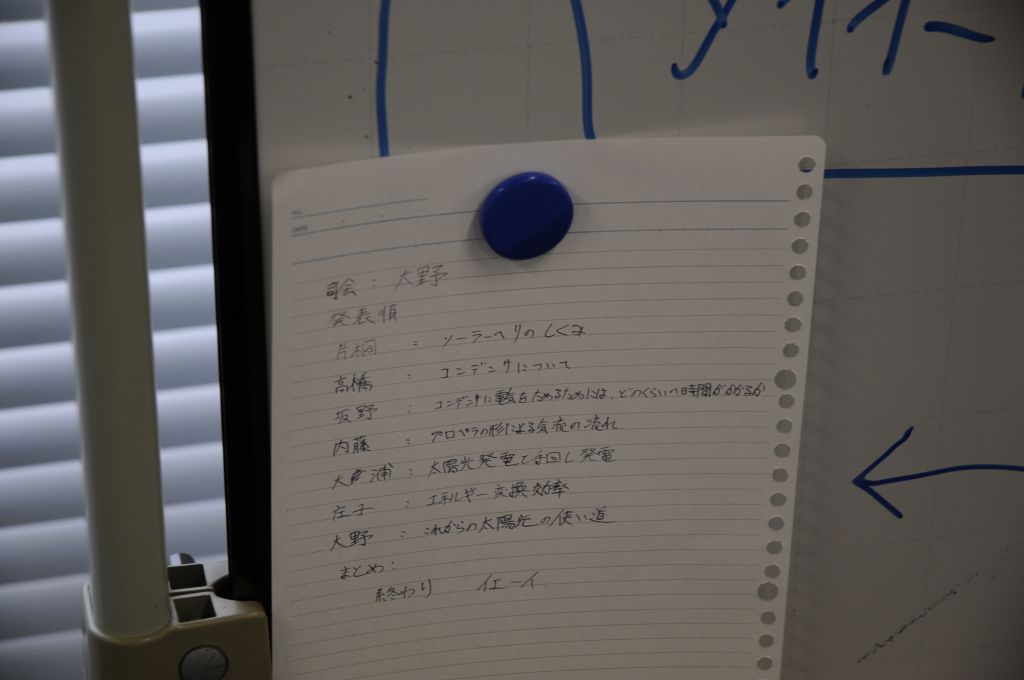 司会：大野
発表順
片桐 ： ソーラーヘリのしくみ
高橋 ： コンデンサについて
坂野 ： コンデンサに電気をためるためには、どのくらいの時間がかかるか
内藤 ： プロペラの形による気流の流れ
大戸浦 ： 太陽光発電と手回し発電
庄子 ： エネルギー変換効率
大野 ： これからの太陽光の使い道
まとめ：
終わり イエーイ